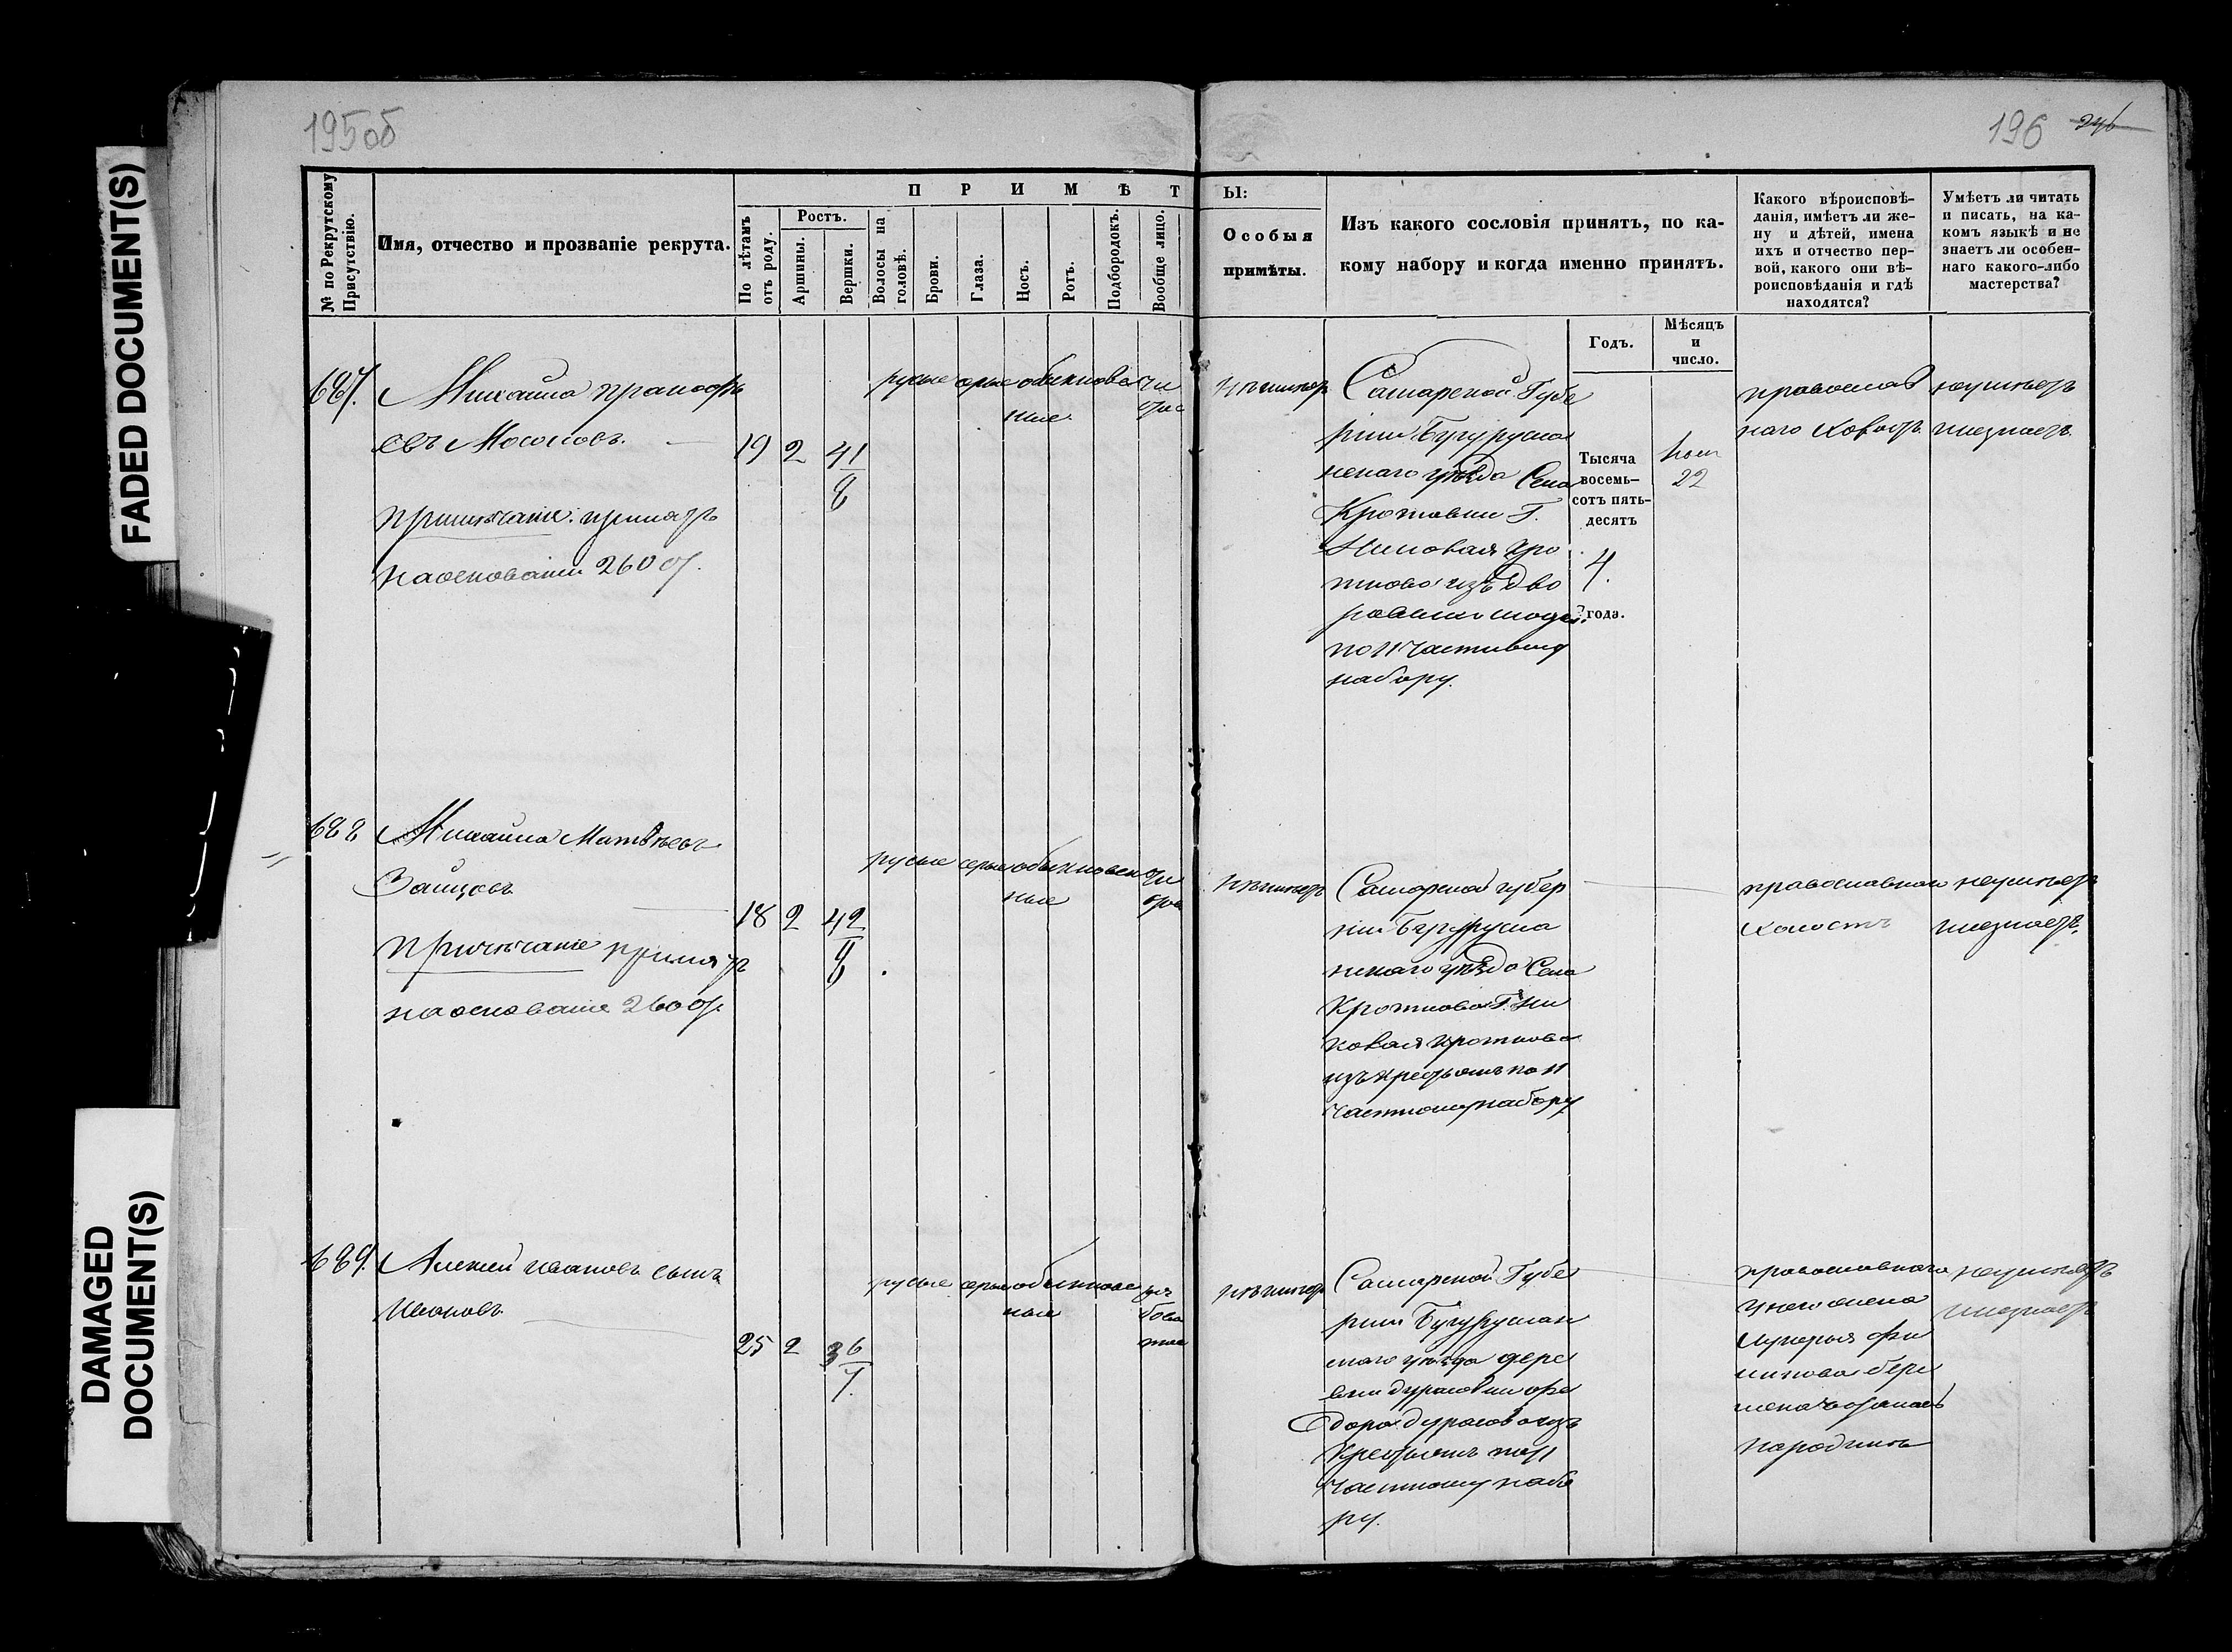 FADED DOCUMENT(S)
DAMAGED
DOCUMENT(S)
195об
196
246
№ по Рекрутскому
Присутствію.
Имя, отчество и прозваніе рекрута.
П Р И М Ѣ Т
По лѣтамъ
отъ роду.
Ростъ.
Аршины.
Вершки.
Волосы на
головѣ.
Брови.
Глаза.
Носъ.
Ротъ.
Подбородокъ.
Вообще лицо.
Ы:
Особыя
примѣты.
Изъ какого сословія принятъ, по ка-
кому набору и когда именно принятъ.
Годъ.
Мѣсяцъ
и
число.
Какого вѣроисповѣ-
данія, имѣетъ ли же-
ну и дѣтей, имена
ихъ и отчество пер-
вой, какого они вѣ-
роисповѣданія и гдѣ
находятся?
Умѣетъ ли читать
и писать, на ка-
комъ языкѣ и не
знаетъ ли особен-
наго какого-либо
мастерства?
687.
Михайла
евъ
примѣчаніе: принятъ
наоснованіи 260 ст.
19 2 4 1/8
русые серые обыкновен
ные
чи
стое
неимѣетъ
Самарской Губе
рніи Бугурусла
нскаго уѣзда Села
Кротовки Г.
изъ Дво
ровыхъ людей
по 11 частному
набору.
Тысяча
восемь-
сотъ пять-
десятъ
4.
года.
22
православ
наго холостъ
неумѣетъ
инезнаетъ
688
Михайла Матвѣевъ
Зайцовъ
примѣчаніе принятъ
наоснованіе 260 ст.
18 2 4 2/8
русые серые обыкновен
ные
чи
стое
неимѣетъ
Самарской губер
ніи Бугурусла
нскаго уѣзда Села
изъ крестьянъ по 11
частному набору
православнаго
холостъ
неумѣетъ
инезнаетъ.
689.
Алексей Ивановъ сынъ
Ивановъ
25 2 3 6/7.
русые серые обыкнове
ные
неимѣетъ
Самарской Губе
рніи Бугуруслан
скаго уѣзда дере
вни Дурасовки Фе
дора Дурасова изъ
крестьянъ по 11
частному набо
ру.
православнаго
у него жена
Лукерья Фи
липова бере
мена осталась
народинѣ
неумѣетъ
инезнаетъ